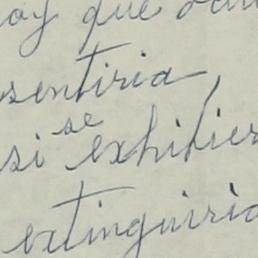 oy que
sentiria,
se
si exhibier
extinguiria